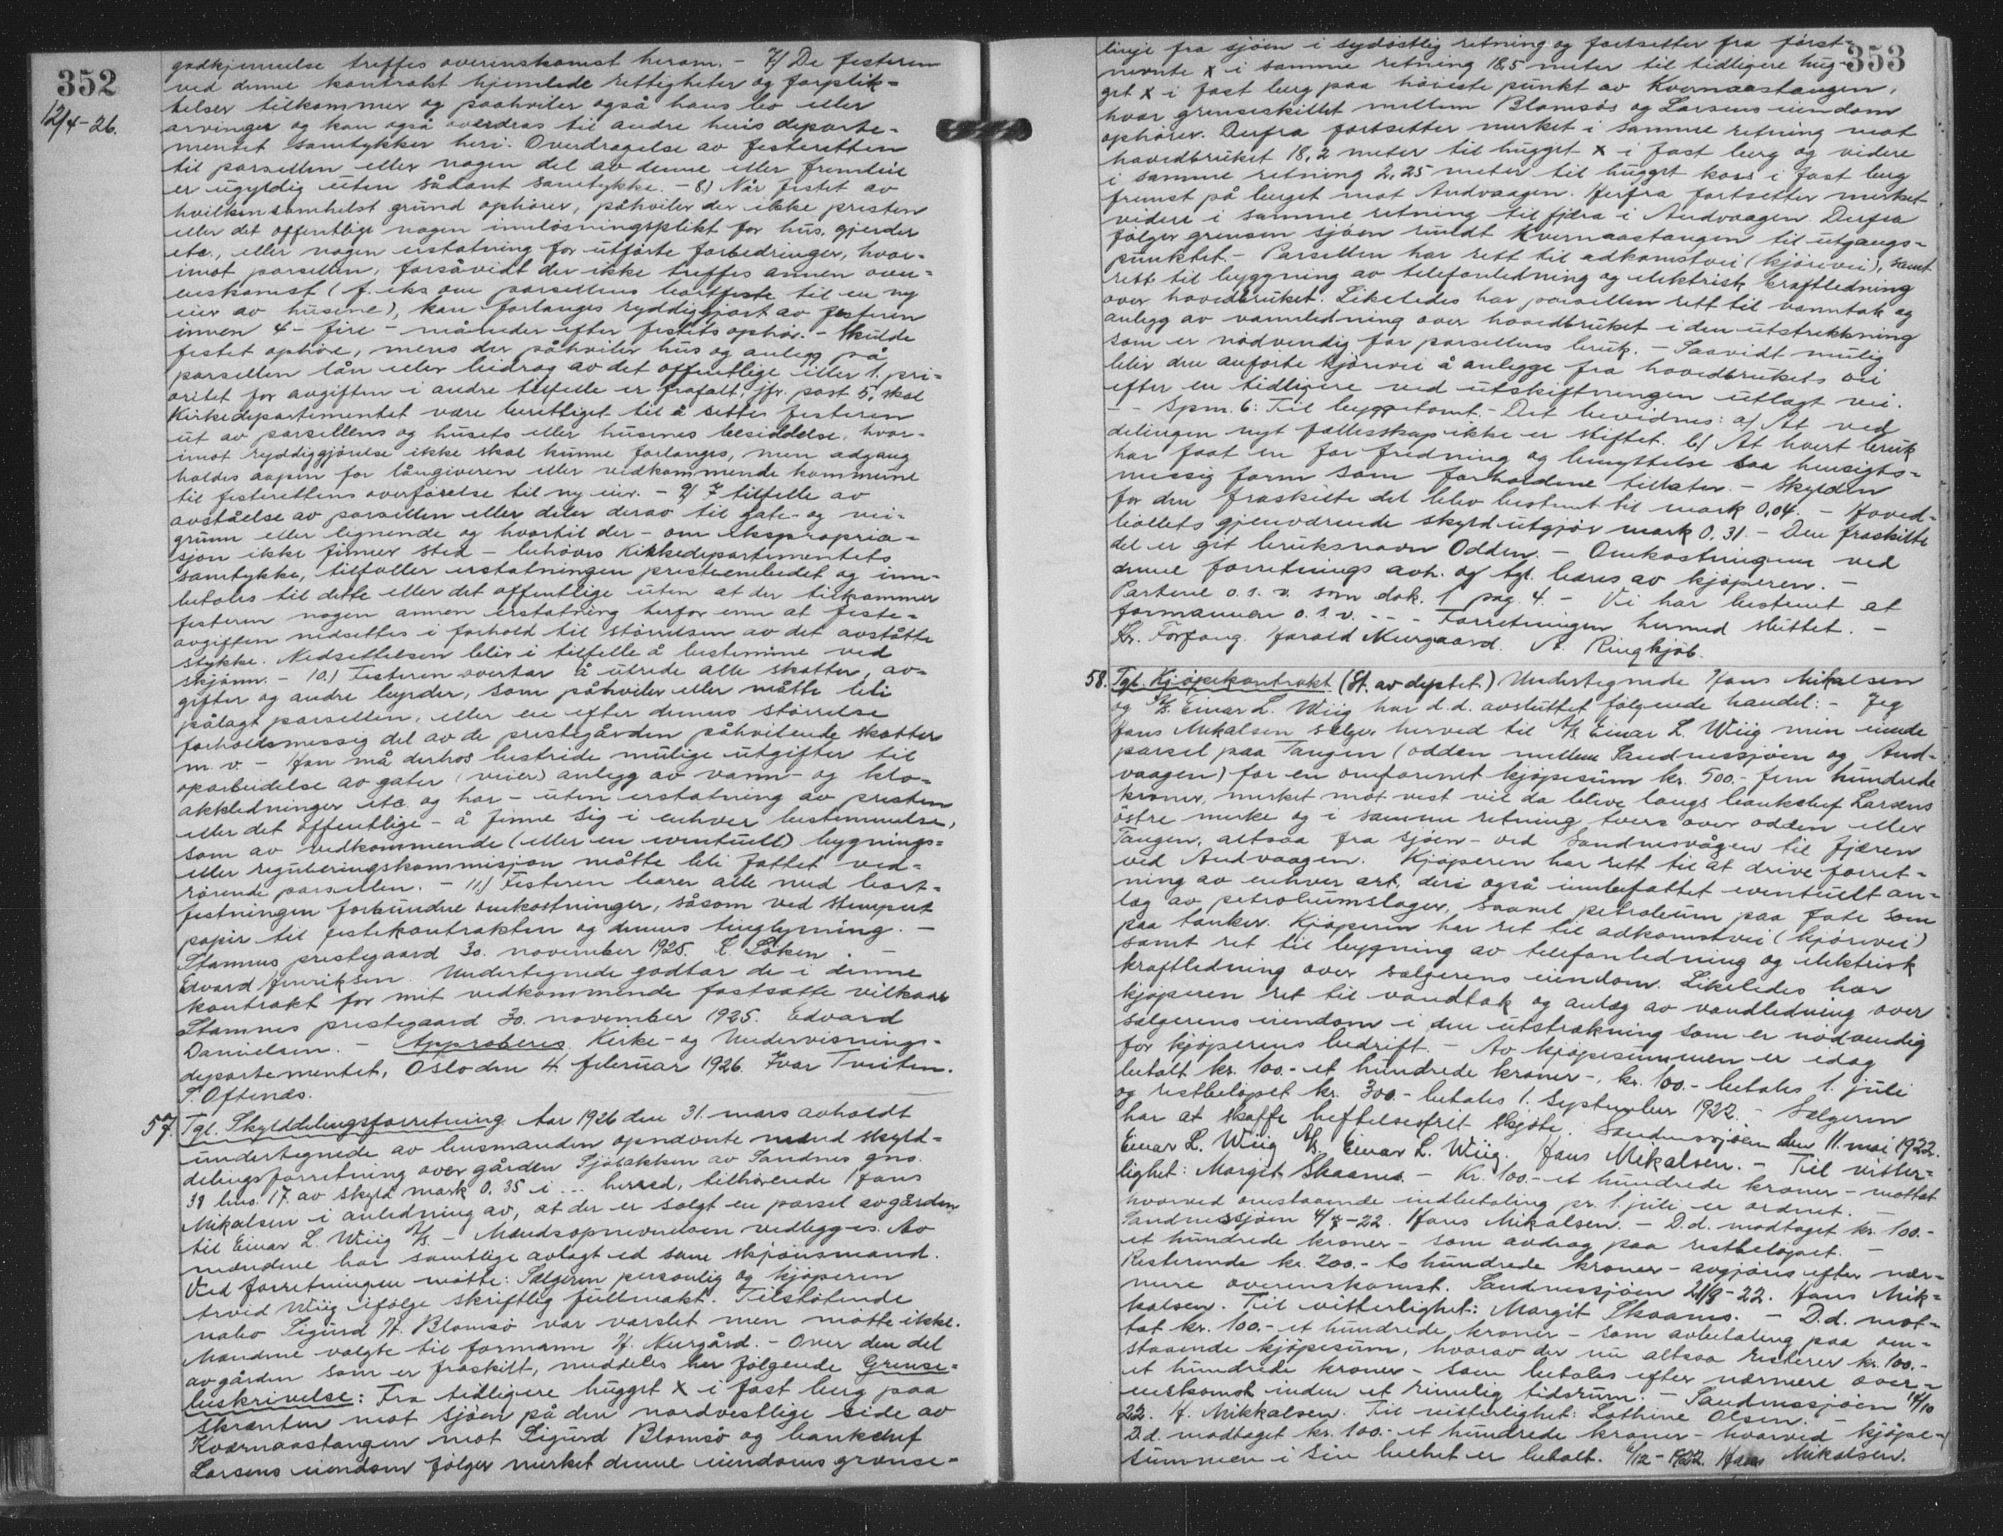 352
12/4-26.
godkjennelse treffes overenskomst herom. - 7/ De festeren
ved denne kontrakt hjemlede rettigheter og forplik-
telser tilkommer og paahviler også hans bo eller
arvinger og kan også overdras til andre hvis departe-
mentet samtykker heri. Overdragelse av festeretten
til parsellen eller nogen del av denne eller fremleie
er ugyldig uten sådant samtykke. - 8) Når festet av
hvilkensomhelst grund ophører, påhviler der ikke presten
eller det offentlige nogen innlösningsplikt for hus, gjerder
etc., eller nogen erstatning for utførte forbedringer, hvor-
imot parsellen, forsåvidt der ikke treffes annen over-
enskomst (f. eks. om parsellens bortfeste til en ny
eier av husene), kan forlanges ryddiggjort av festeren
innen 4 - fire - måneder efter festets ophør. - Skulde
festet ophøre, mens der påhviler hus og anlegg på
parsellen lån eller bidrag av det offentlige eller 1. pri-
oritet for avgiften i andre tilfelle er frafalt, jfr. post 5, skal
Kirkedepartementet være berettiget til å sette festeren
ut av parsellens og husets eller husenes besiddelse, hvor-
imot ryddiggjörelse ikke skal kunne forlanges, men adgang
holdes aapen for långiveren eller vedkommende kommune
til festerettens overförelse til ny eier. - 9/ I tilfelle av
avståelse av parsellen eller deler derav til gate- og vei-
grunn eller lignende og hvortil der - om ekspropria-
sjon ikke finner sted - behöves Kirkedepartementets
samtykke, tilfaller erstatningen presteembedet og inn-
betales til dette eller det offentlige uten at der tilkommer
festeren nogen annen erstatning herfor enn at feste-
avgiften nedsettes i forhold til störrelsen av det avståtte
stykke. Nedsettelsen blir i tilfelle å bestemme ved
skjönn. - 10.) Festeren overtar å utrede alle skatter, av-
gifter og andre byrder, som påhviler eller måtte bli
pålagt parsellen, eller en efter dennes störrelse
forholdsmessig del av de prestegården påhvilende skatter
m. v. - Han må derhos bestride mulige utgifter til
oparbeidelse av gater (veier) anlegg av vann- og klo-
akkledninger etc. og har - uten erstatning av presten
eller det offentlige - å finne sig i enhver bestemmelse,
som av vedkommende (eller en eventuell) bygnings-
eller reguleringskommisjon måtte bli fattet ved-
rörende parsellen. - 11.) Festeren bærer alle med bort-
festningen forbundne omkostninger, såsom ved stemplet
papir til festekontrakten og dennes tinglysning. -
Stamnes prestegaard 30. november 1925. L. Löken. -
Edvard Henriksen. Undertegnede godtar de i denne
kontrakt for mit vedkommende fastsatte vilkaar
Stamnes prestegaard 30. november 1925. Edvard
Danielsen. - Approberes Kirke- og Undervisnings-
departementet, Oslo den 4. februar 1926. Ivar Tveiten.
S. Oftenæs.
57. Tgl. Skylddelingsforretning Aar 1926 den 31. mars avholdt
undertegnede av lensmanden opnævnte mænd skyld-
delingsforretning over gården Sjöbakken av Sandnes gno.
38 bno. 17. av skyld mark 0.35 i ... herred, tilhørende Hans
Mikalsen i anledning av, at der er solgt en parsel av gården
til Einar L. Wiig A/s. - Mændsopnevnelsen vedlegges. Av
mændene har samtlige avlagt ed som skjönsmænd.
Ved forretningen møtte: Sælgeren personlig og kjøperen
Arvid Wiig ifölge skriftlig fullmakt. Tilstötende
nabo Sigurd H. Blomsö var varslet men møtte ikke.
Mændene valgte til formann H. Nurgård. - Over den del
av gården som er fraskilt, meddeles her følgende Grense-
beskrivelse: Fra tidligere hugget X i fast berg paa
skrænten mot sjøen på den nordvestlige side av
Kværnaastangen mot Sigurd Blomsö og bankchef
Larsens eiendom følger merket denne eiendoms grænse-
353
linje fra sjøen i sydøstlig retning og fortsetter fra först-
nevnte X i samme retning 18,5 meter til tidligere hug-
get X i fast berg paa höieste punkt av Kvernaastangen,
hvor grenseskillet mellem Blomsös og Larsens eiendom
ophører. Derfra fortsetter merket i samme retning mot
hovedbruket 18,2 meter til hugget X i fast berg og videre
i samme retning 2,25 meter til hugget kors i fast berg
fremst på berget mot Andvaagen. Herfra fortsetter merket
videre i samme retning til fjæra i Andvaagen. Derfra
følger grensen sjøen rundt Kvernaastangen til utgangs-
punktet. - Parsellen har rett til adkomstvei (kjörevei), samt
rett til bygning av telefonledning og elektrisk kraftledning
over hovedbruket. Likeledes har parsellen rett til vanntak og
anlegg av vannledning over hovedbruket i den utstrekkning
som er nödvendig for parsellens bruk. - Saavidt mulig
blir den anförte kjörevei å anlegge fra hovedbrukets vei
efter en tidligere ved utskiftningen utlagt vei.
- - Spm. 6: Til byggetomt. - Det bevidnes: a) At ved
delingen nyt fællesskap ikke er stiftet. b) At hvert bruk
har faat en for fredning og benyttelse saa hensigts-
messig form som forholdene tillater. - Skylden
for den fraskilte del blev bestemt til mark 0,04. - Hoved-
böllets gjenværende skyld utgjör mark 0.31. - Den fraskilte
del er git bruksnavn Odden. - Omkostningene ved
denne forretnings avh. og tgl. bæres av kjöperen. -
Partene o. s. v. som dok. 1 pag. 4. - Vi har bestemt at
formannen o. s. v. - - - Forretningen hermed sluttet. -
Kr. Forfang. Harald Nurgaard. A. Ringkjöb.
58. Tgl. Kjöpekontrakt (St. av deptet.) Undertegnede Hans Mikalsen
og A/s. Einar L. Wiig har d.d. avsluttet følgende handel: - Jeg
Hans Mikalsen sælger herved til A/s Einar L. Wiig min eiende
parsel paa Tangen (odden mellem Sandnessjöen og And-
vaagen) for en omforenet kjöpesum kr. 500.- fem hundrede
kroner, merket mot vest vil da blive langs bankchef Larsens
östre merke og i samme retning tvers over odden eller
Tangen, altsaa fra sjøen - ved Sandnesvågen til fjæren
ved Andvaagen. Kjöperen har rett til at drive forret-
ning av enhver art, deri også innbefattet eventuelt an-
læg av petroleumslager, saavel petroleum paa fate som
paa tanker. Kjøperen har ret til adkomstvei (kjörevei)
samt ret til bygning av telefonledning og elektrisk
kraftledning over sælgerens eiendom. Likeledes har
kjøperen ret til vandtak og anlæg av vandledning over
sælgerens eiendom i den utstrækning som er nødvendig
for kjøperens bedrift. - Av kjøpesummen er idag
betalt kr. 100.- et hundrede kroner -, kr. 100.- betales 1. juli
og restbeløpet kr. 300.- betales 1. September 1922. - Sælgeren
har at skaffe heftelsesfrit skjöte. Sandnessjøen den 11. mai 1922.
Einar L. Wiig A/s. Einar L. Wiig. Hans Mikalsen. - Til vitter-
lighet: Margit Skaanes. - Kr. 100.- et hundrede kroner - mottat
hvorved omstaaende indbetaling pr. 1. juli er ordnet. -
Sandnessjöen 4/8-22. Hans Mikalsen. - D.d. modtaget kr. 100.-
et hundrede kroner - som avdrag paa restbeløpet. -
Resterende kr. 200.- to hundrede kroner - avgjøres efter nær-
mere overenskomst. Sandnessjöen 21/9-22. Hans Mik-
kalsen. Til vitterlighet: Margit Skaanes. - D.d. mot-
tat kr. 100.- et hundrede kroner - som avbetaling paa om-
staaende kjøpesum, hvorav der nu altsaa resterer kr. 100.-
et hundrede kroner - som betales efter nærmere over-
enskomst inden et rimelig tidsrum. - Sandnessjöen 14/10
22. H. Mikkalsen. Til vitterlighet: Lothine Olsen. -
D.d. modtaget kr. 100.- et hundrede kroner - hvorved kjöpe-
summen i sin helhet er betalt. 6/12-1922. Hans Mikalsen.